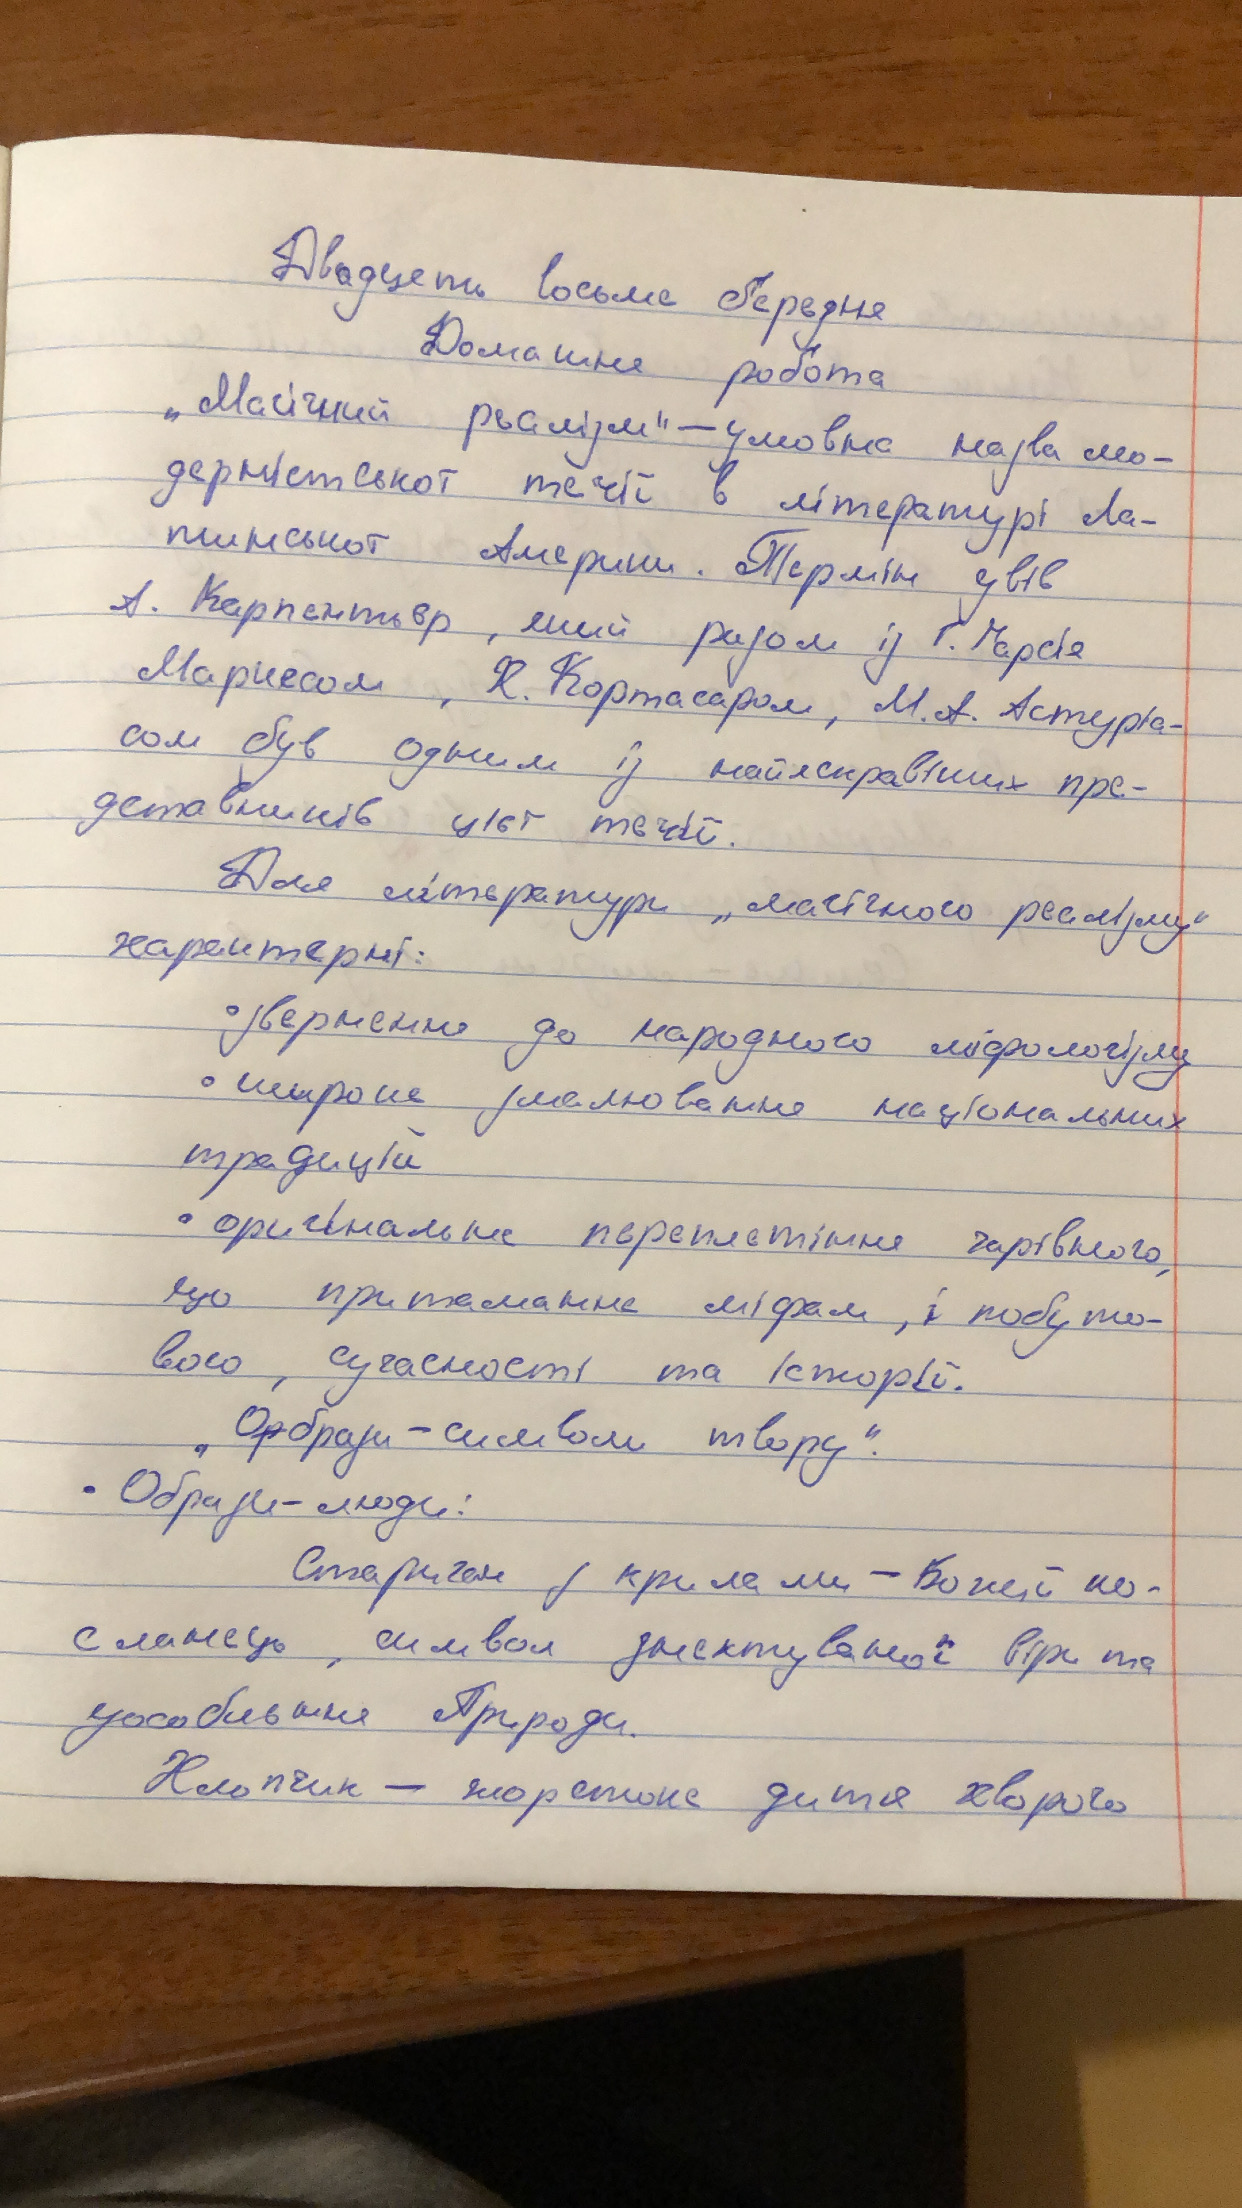 Двадцять восьме березня
Домашня робота
„Магічний реалізм" – умовна назва мо-
дерністської течії в літературі Ла-
тинської Америки. Термін увів
А. Карпентьєр, який разом із Г. Гарсія
Маркесом, Х. Кортасаром, М.А. Астуріа-
сом був одним із найяскравіших пре-
дставників цієї течії.
Для літератури „магічного реалізму"
характерні:
• звернення до народного міфологізму
• широке змалювання національних
традицій
• оригінальне переплетіння чарівного,
що притаманне міфам, і побуто-
вого, сучасності та історії.
„Образи-символи твору".
• Образи-люди:
Стариган з крилами – Божий по-
сланець, символ знехтуваної віри та
уособлення Природи.
Хлопчик – жорстоке дитя хворого